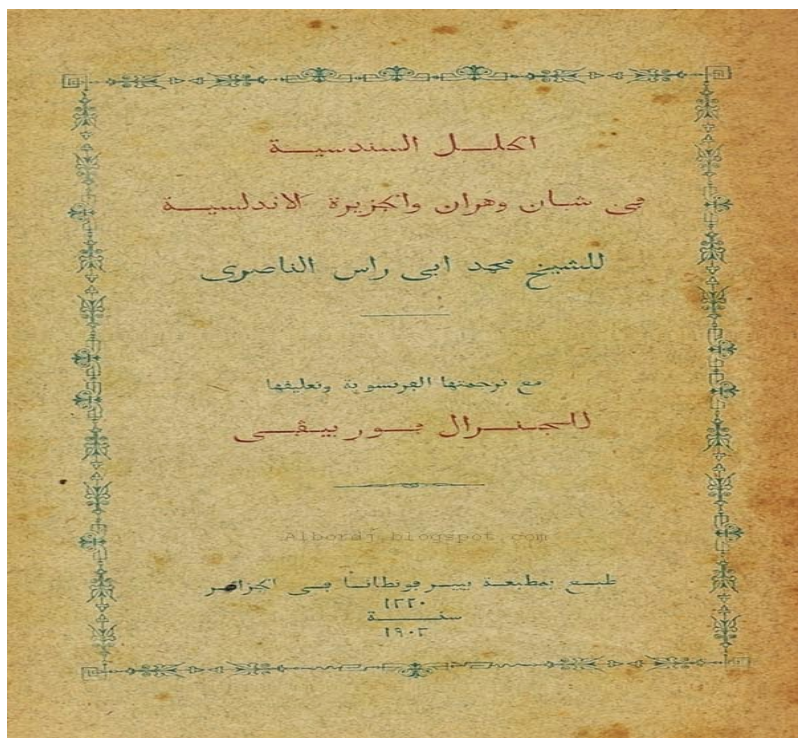 الحلل السندسية
في شان وهران والجزيرة الاندلسية
للشيخ محمد ابى راس الناصرى
مع ترجمتها الفرنسوية وتعليقها
للجنرال فوربيڤى
Alboraj.blogspot.com
طبع بمطبعة بيير فونطانا في الجزائر
١٣٢٠
سنة
١٩٠٣